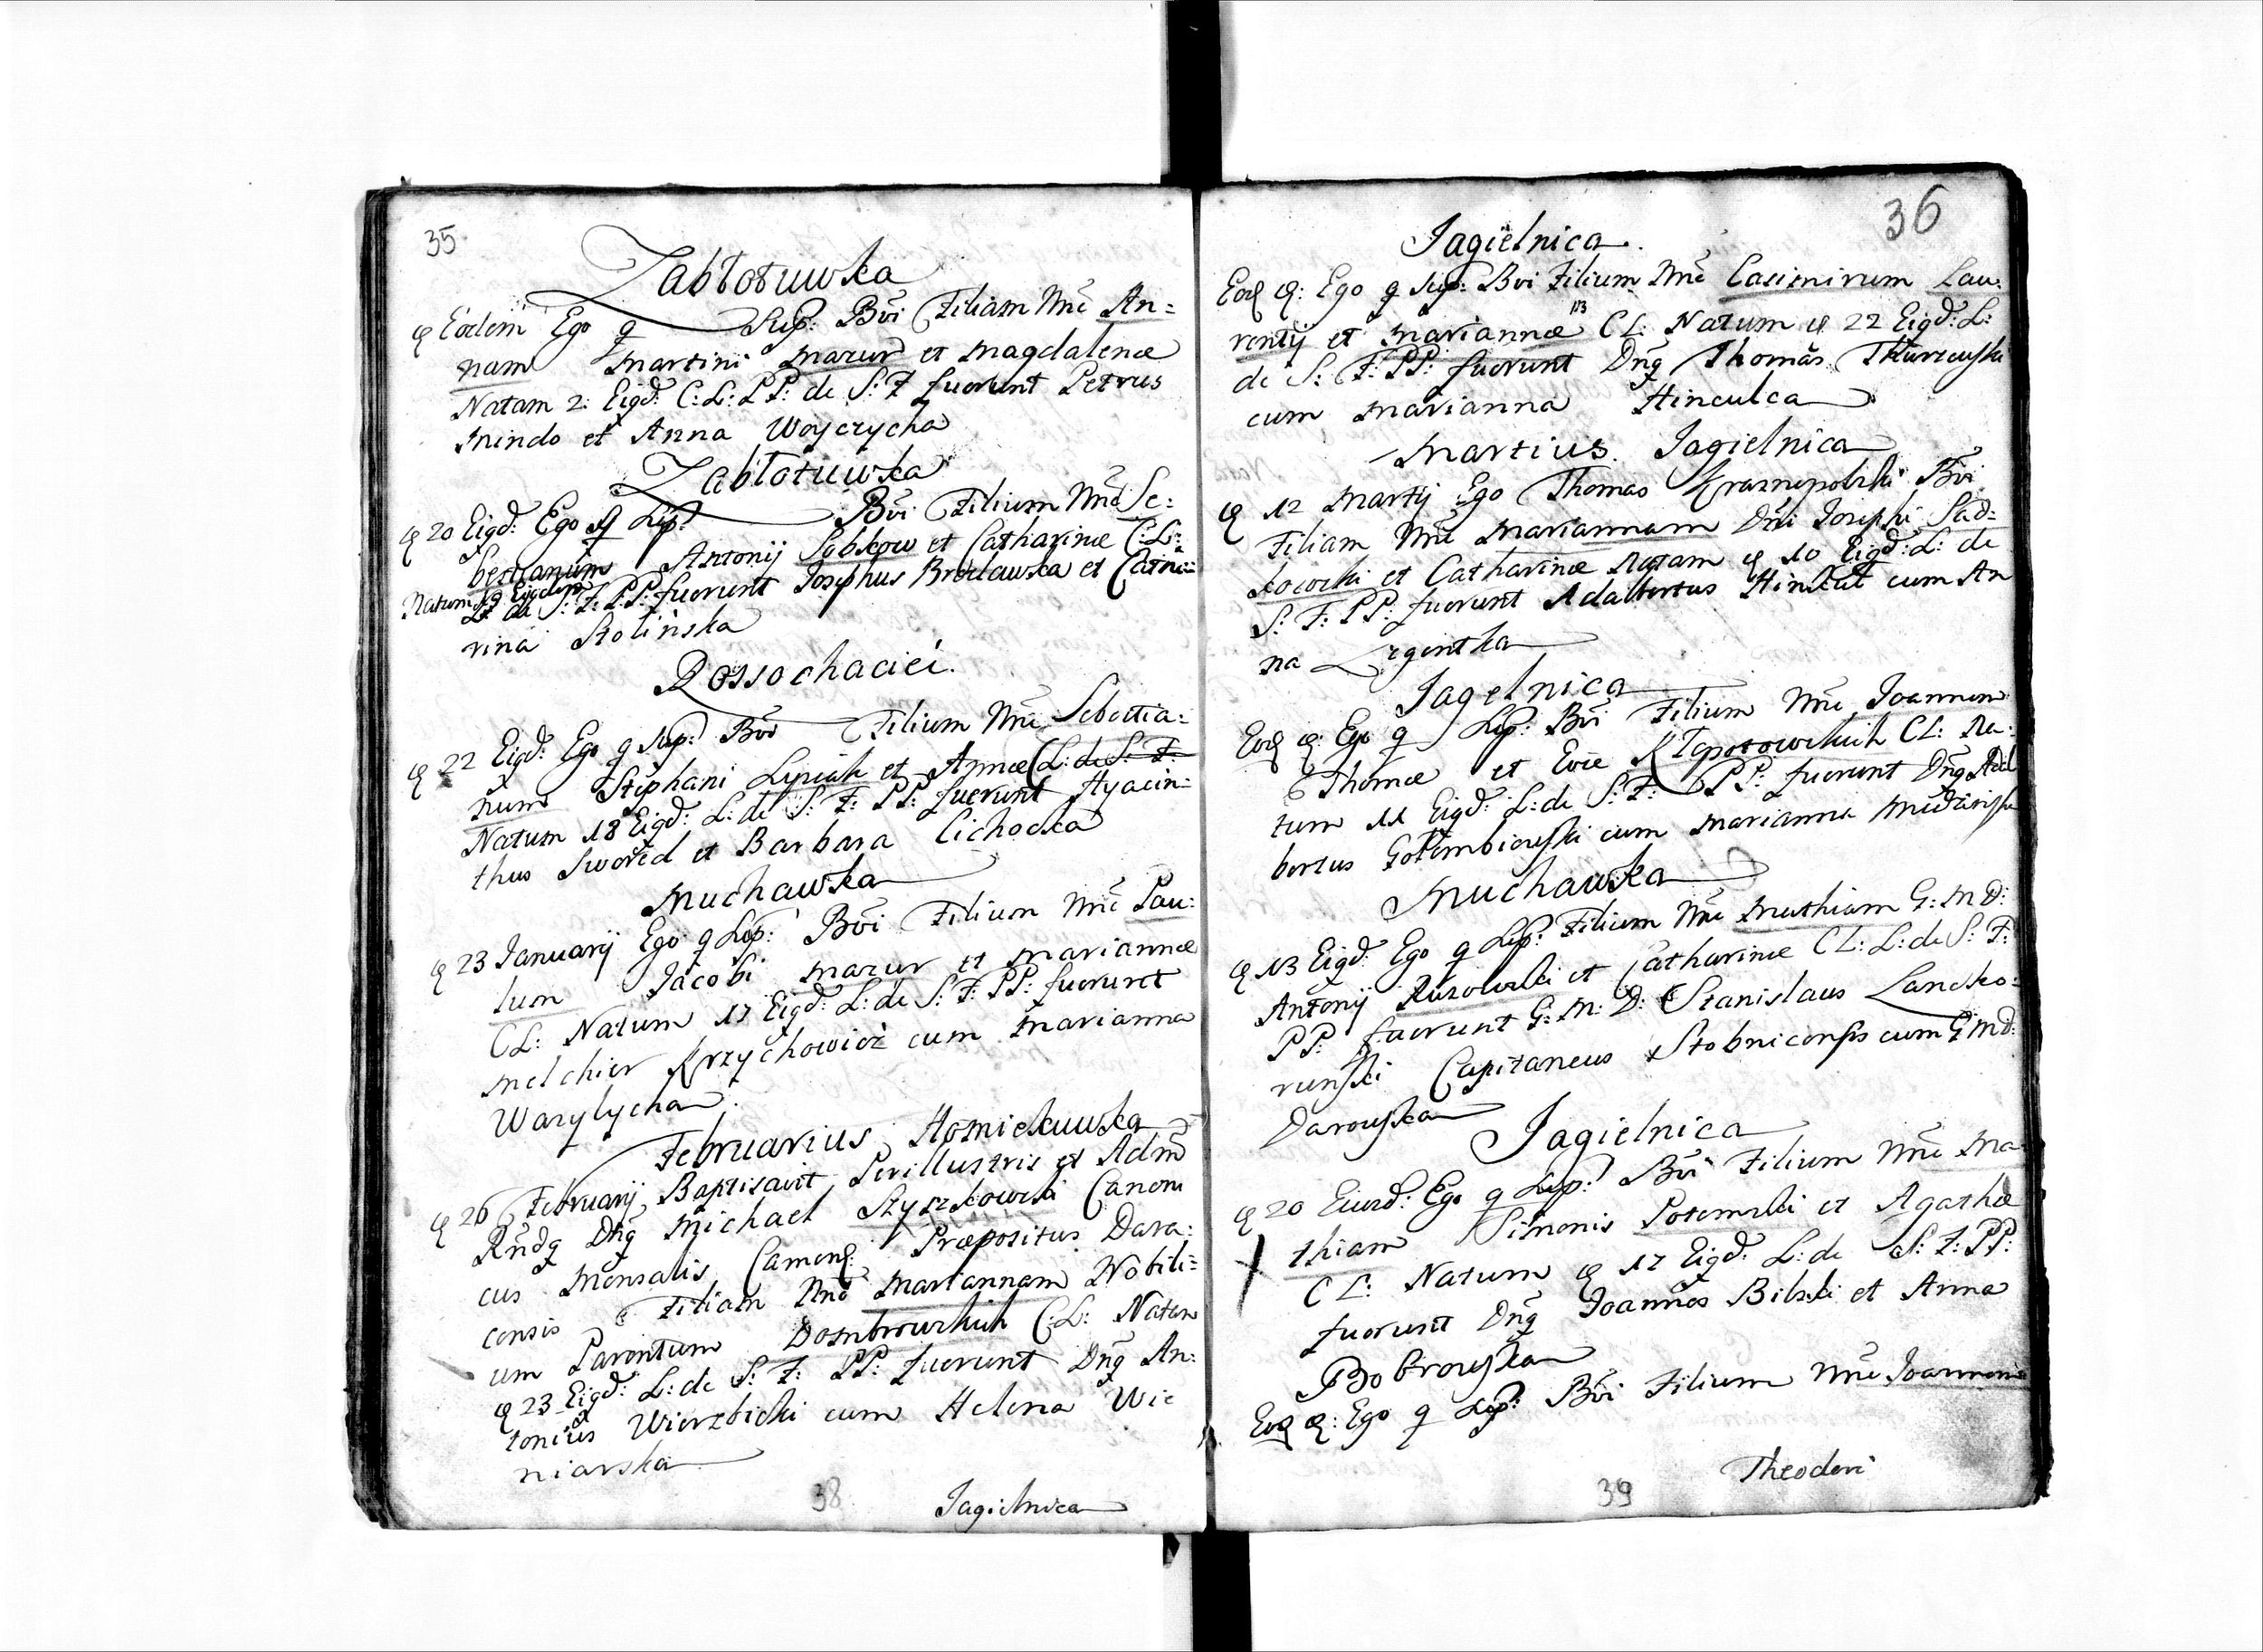 35
Zabłotuwka
Eodem Ego q Sup: Bvi Filiam Nne An=
nam Martini Mazur et Magdalenæ
Natam 2: Eigd: C: L: PP: de S: F fuerunt Petrus
Mindo et Anna Woyczycha
Zabłotuwka
20 Eigd: Ego q Sup: Bvi Filium Nne Se=
bestianum Antonij Sobkow et Catharinæ C: L:
Natum 19 Eigdem
L: de S: F: PP: fuerunt Josephus Brocławska et Catha=
rina Stolinska
Rossochacici.
22 Eigd: Ego q Sup: Bvi Filium Nne Sebestia=
num Stephani Lysiak et Annæ C L: de S: F:
Natum 18 Eigd: L: de S: F: PP: fuerunt Hyacin=
thus Swored et Barbara Cichocka
Muchawka
23 Januarij Ego q Sup: Bvi Filium Nne Pau=
lum Jacobi Mazur et Mariannæ
CL: Natum 17 Eigd: L: de S: F: PP: fuerunt
Melchier Krzychowicz cum Marianna
Warylycha
Februarius, Homickuwka
26 Februarij Baptisavit Perillustris et Adm
Rndq Dnq Michael Styszkowski Canoni
cus Mensalis Camen: Præpositus Dava=
censis Filiam Nne Mariannam Nobili=
um Parentum Dombrowskich C: L: Natam
23 Eigd: L: de S: F: PP: fuerunt Dnq An=
tonius Wierzbicki cum Helena Wie
niarska
38
Jagielnica
36
Jagielnica.
Eod: Ego q Sup: Bvi Filium Nne Casimirum Lau=
rentij et Mariannæ CL: Natum 22 Eigd: L:
de S: F: PP: fuerunt Dnq Thomas
cum Marianna Hinculca
Martius. Jagielnica
12 Martij Ego Thomas Krasnopolski Bvi
Filiam Nne Mariannam Dni Josephi Sad=
kowski et Catharinæ Natam 10 Eigd: L: de
S: F: PP: fuerunt Adalbertus Hinkul cum An
na
Jagelnica
Eod: Ego q Sup: Bvi Filium Nne Joannem
Thomæ et Evæ Kloporowskich CL: Na=
tum 11 Eigd: L: de S: F: PP: fuerunt Dnq Adal
bertus Gołembiowski cum Marianna
Muchawka
13 Eigd: Ego q Sup: Filium Nne Mathiam G: M D:
Antonij Rusowski et Catharinæ CL: L: de S: F:
PP: fuerunt G: M: D: Stanislaus Lancko=
runski Capitaneus Stobnicensis cum G M D:
Darowska
Jagielnica
20 Eiusd: Ego q Sup: Bvi Filium Nne Ma
thiam Simonis Potemski et Agathæ
C L: Natum 17 Eigd: L: de S: F: PP:
fuerunt Dnq Joannes Bilski et Anna
Bobrowska
Eod: Ego q Sup: Bvi Filium Nne Joannem
Theodori
39